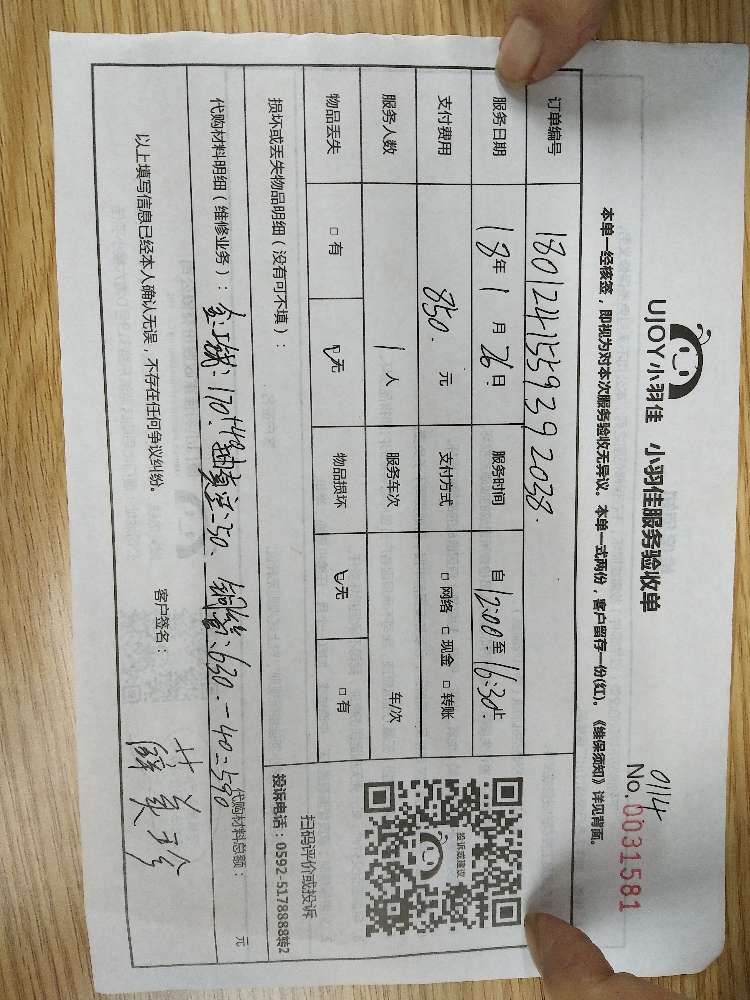 UJOY小羽佳 小羽佳服务验收单
0114
No. 0031581
本单一经核签，即视为对本次服务验收无异议。本单一式两份，客户留存一份(红)。《维保须知》详见背面。
订单编号 180124155939 2038.
服务日期 18年1月26日 服务时间 自12:00至16:30止
支付费用 850. 元 支付方式 □网络 □现金 □转账
服务人数 1人 服务车次 车/次
物品丢失 □有 □无 物品损坏 □无 □有
投诉或建议
扫码评价或投诉
投诉电话：0592-5178888转2
损坏或丢失物品明细（没有可不填）：
代购材料明细（维修业务）：170 250、铜管:630.-40=590
代购材料总额： 元
以上填写信息已经本人确认无误，不存在任何争议纠纷。 客户签名：